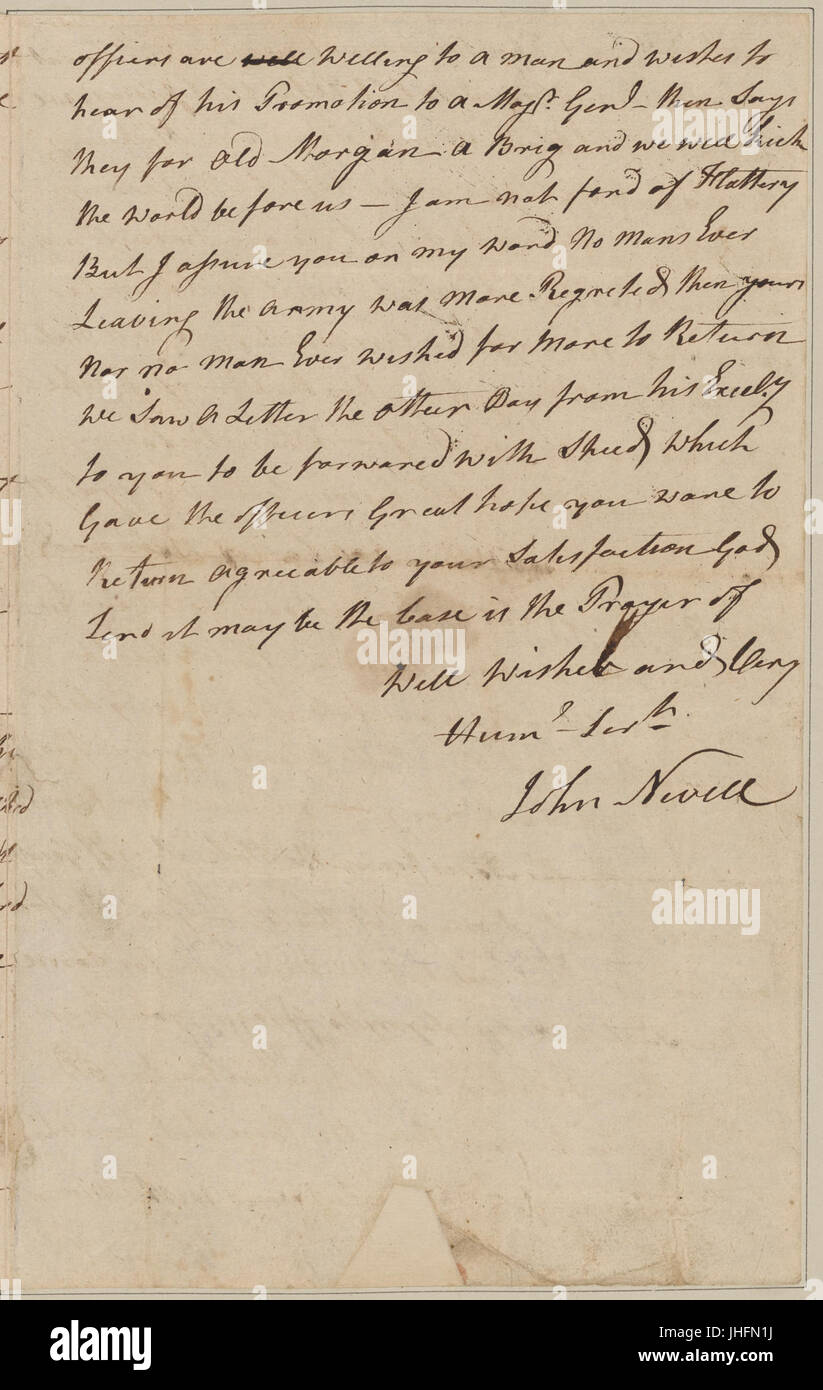 officers are well Willing to a man and wishes to
hear of his Promotion to a Majr. Genl - then Says
they for Old Morgan a Brig and we will kick
the world before us — I am not fond of Flattery
But I assure you on my word No mans Ever
Leaving the army was More Regreted then yours
Nor no man Ever wished for More to Return
we Saw a Letter the other Day from his Excely
to you to be forwared with Speed, which
Gave the officers Great hope you ware to
Return agreeable to your Satisfaction God
Send it may be the Case is the Prayer of
Well Wisher and Very
Huml- Sert.
John Nevill
alamy
Image ID: JHFN1J
www.alamy.com